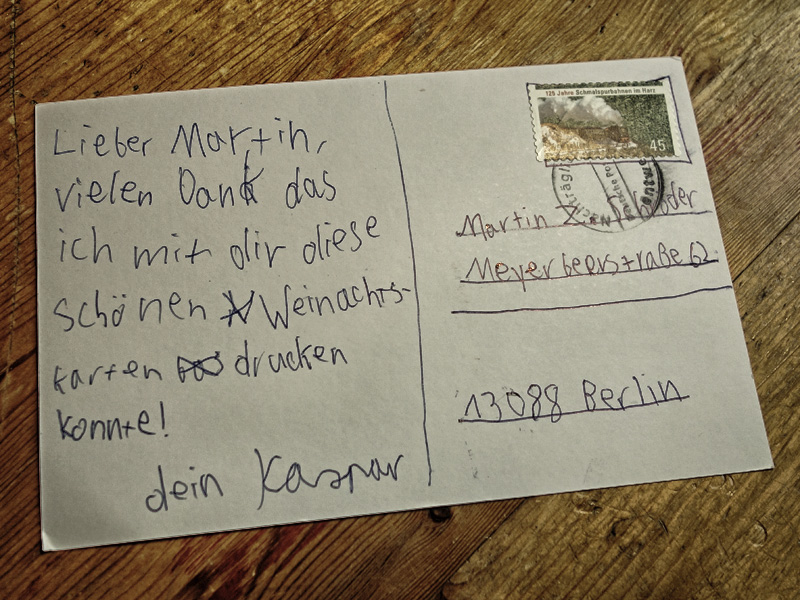 Lieber Martin,
vielen Dank das
ich mit dir diese
schönen Weinachts-
karten drucken
konnte!
dein Kaspar
125 Jahre Schmalspurbahnen im Harz
45
Martin Z.
Meyerbeerstraße 62
13088 Berlin